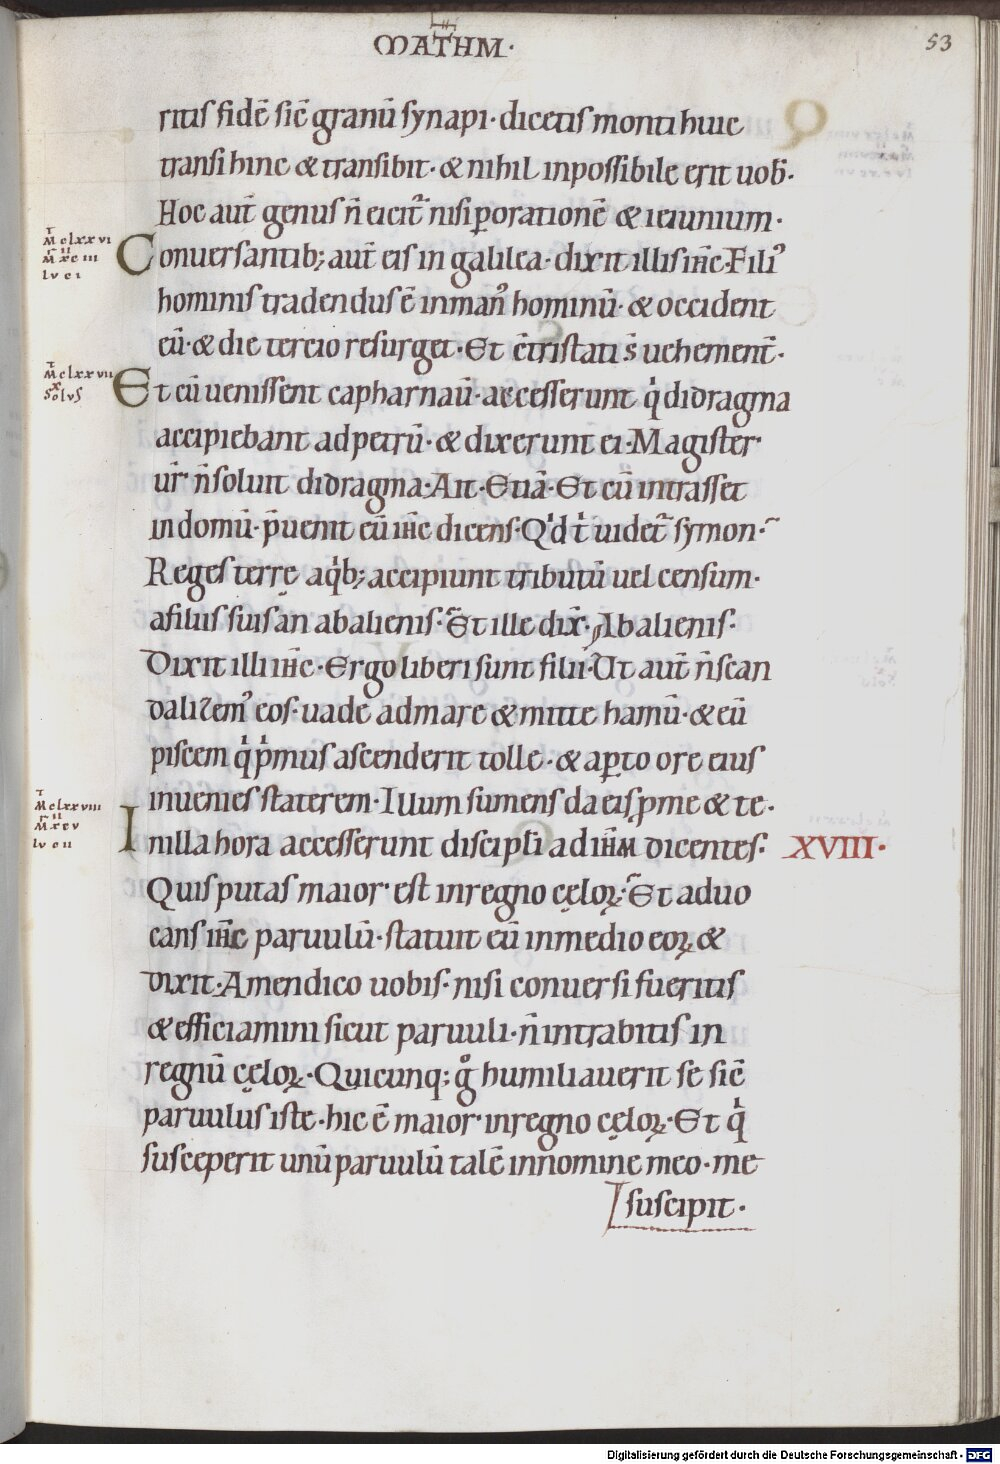 MATHM·
53
ritis fidē sic̄ granū synapi· dicetis monti huic
transi hinc & transibit· & nihil inpossibile erit uob̄·
Hoc aut̄ genus n̄ eicit̄ nisi ꝑ orationē & ieiunium·
M clxxvi
M xc iii
l v c i
Conuersantib; aut̄ eis in galilea· dixit illis ih̄c· Filiꝰ
hominis tradendus ē in manꝰ hominū· & occident
eū· & die tercio resurget· Et c̄tristati s̄ uehement̄·
M clxxvii
X
SolvS
Et cū uenissent capharnaū· accesserunt qͥ didragma
accipiebant ad petrū· & dixerunt ei· Magister
ur̄ n̄ soluit didragma· Ait· Etiā· Et cū intrasset
in domū· p̄uenit eū ih̄c dicens· Qͥd t̄ uidet̄ symon·
Reges terrę aqͥb; accipiunt tributū uel censum·
a filiis suis an ab alienis· Et ille dix̄· Ab alienis·
Dixit illi ih̄c· Ergo liberi sunt filii· Ut aut̄ n̄ scan
dalizemꝰ eos· uade ad mare & mitte hamū· & eū
piscem qͥ pͥmus ascenderit tolle· & aꝑto ore eius
inuenies staterem· Illum sumens da eis ꝓ me & te·
M clxxviii
M xcv
l v c ii
In illa hora accesserunt discipli ad ih̄m dicentes·
XVIII·
Quis putas maior est in regno cęloꝝ· Et aduo
cans ih̄c paruulū· statuit eū in medio eoꝝ &
dixit· Amen dico uobis· nisi conuersi fueritis
& efficiamini sicut paruuli· n̄ intrabitis in
regnū cęloꝝ· Quicunq; gͦ humiliauerit se sic̄
paruulus iste· hic ē maior in regno cęloꝝ· Et qͥ
susceperit unū paruulū talē in nomine meo· me
suscipit·
Digitalisierung gefördert durch die Deutsche Forschungsgemeinschaft - DFG